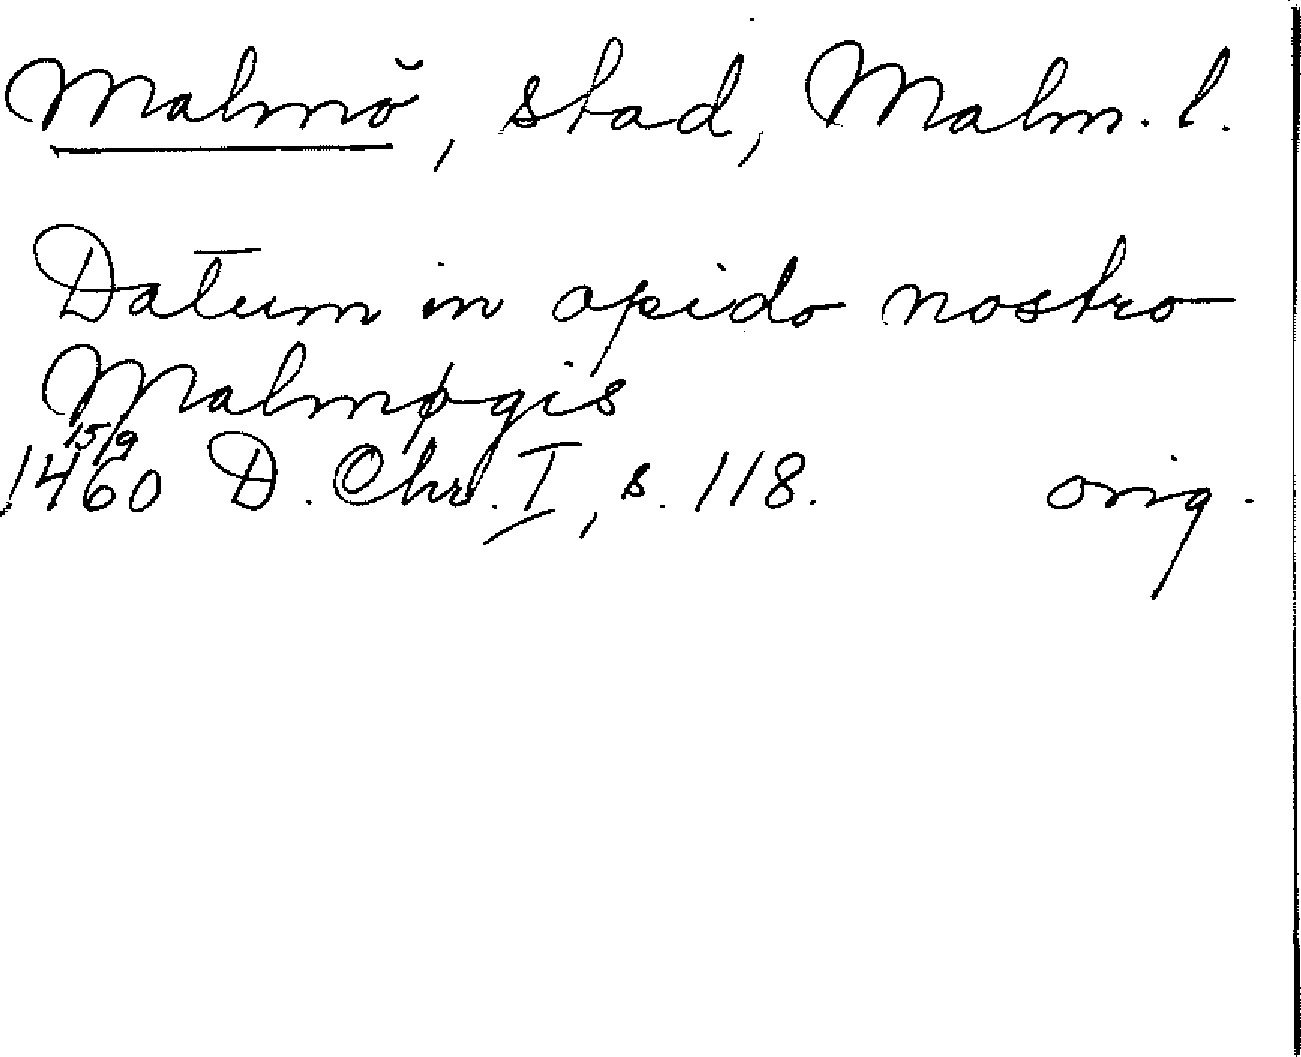 Malmö, stad, Malm. l.
Datum in opido nostro
Malmøgis
15/9
1460 D. Chr. I, s. 118. orig.